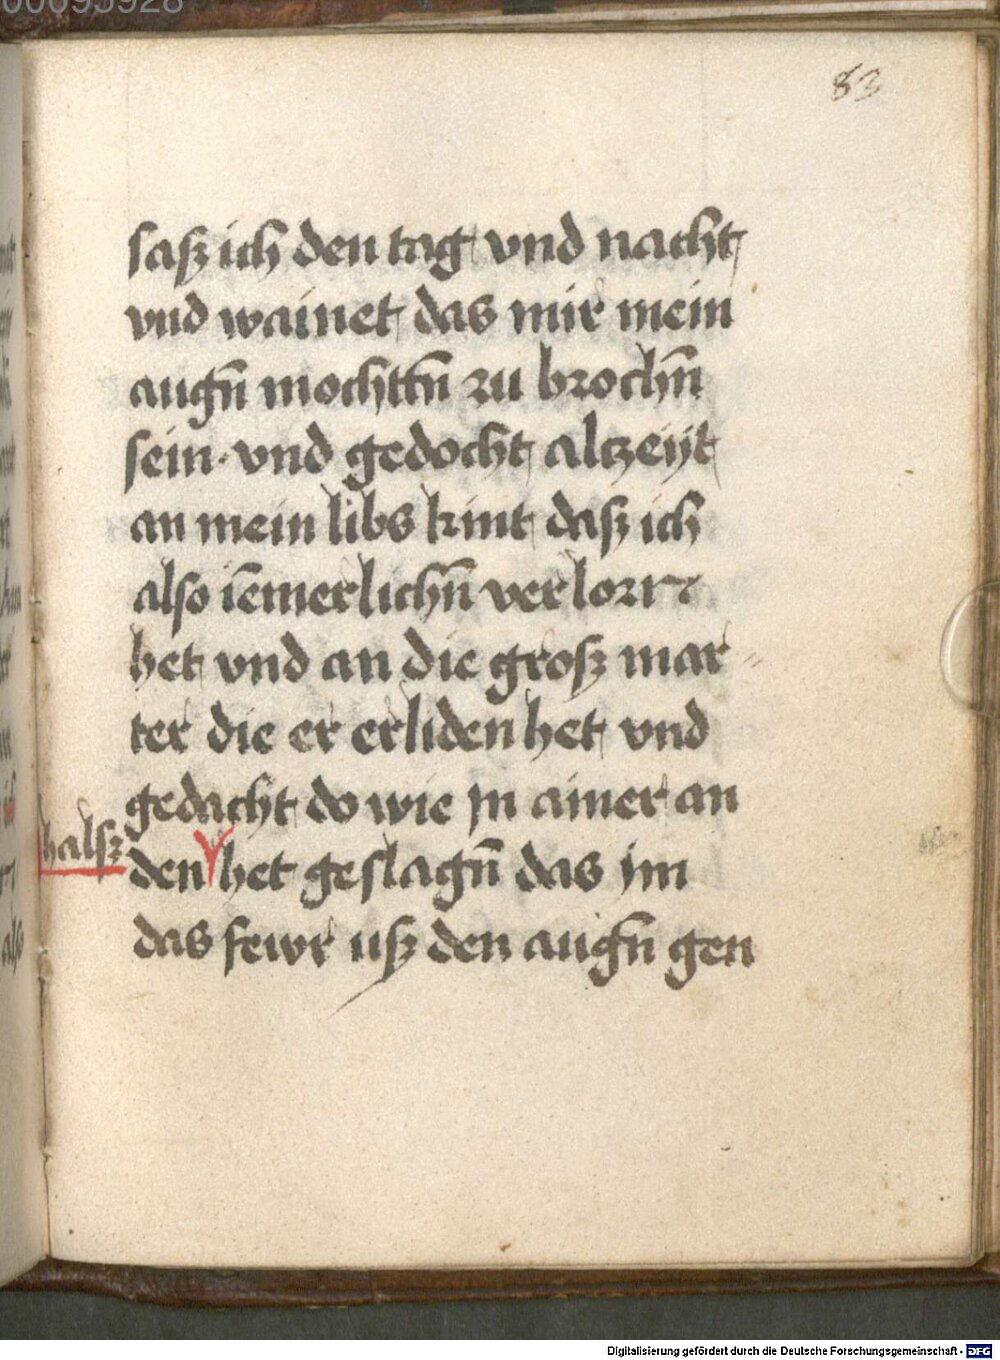 83
saß ich den tag vnd nacht
vnd wainet das mir mein
augn̄ mochttn̄ zu brochn̄
sein · vnd gedocht altzeijt
an mein libs kint daß ich
also iēmerlichn̄ verlorr
het vnd an die groß mar
ter die er erliden het vnd
gedacht do wie jn ainer an
halsz
den het geslagn̄ das jm
das fewr uß den augn̄ gen
Digitalisierung gefördert durch die Deutsche Forschungsgemeinschaft - DFG